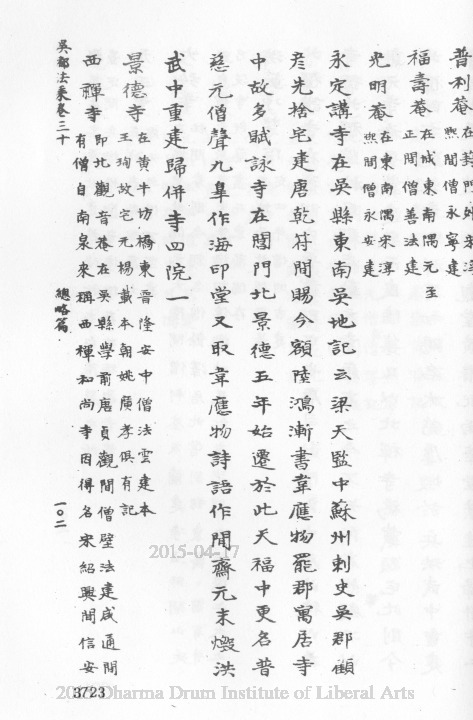 普利菴在葑門外宋淳
熙間僧永寧建
福壽菴在城東南隅元至
正間僧善法建
光明菴在東南隅宋淳
熙間僧永安建
永定講寺在吳縣東南吳地記云梁天監中蘇州刺史吳郡顧
彥先捨宅建唐乾符間賜今額陸鴻漸書韋應物罷郡寓居寺
中故多賦詠寺在閶門北景德五年始遷於此天福中更名普
慈元僧聲九皐作海印堂又取韋應物詩語作閒齋元末燬洪
武中重建歸併寺四院一
景德寺在黃牛坊橋東晉隆安中僧法雲建本
王珣故宅元楊載本朝姚廣孝俱有記
西禪寺即北觀音菴在吳縣學前唐貞觀間僧璧法建咸通間
有僧自南泉來稱西禪和尚寺因得名宋紹興間信安
吳都法乘卷三十 總略篇 一〇二
2015-04-17
3723
Dharma Drum Institute of Liberal Arts